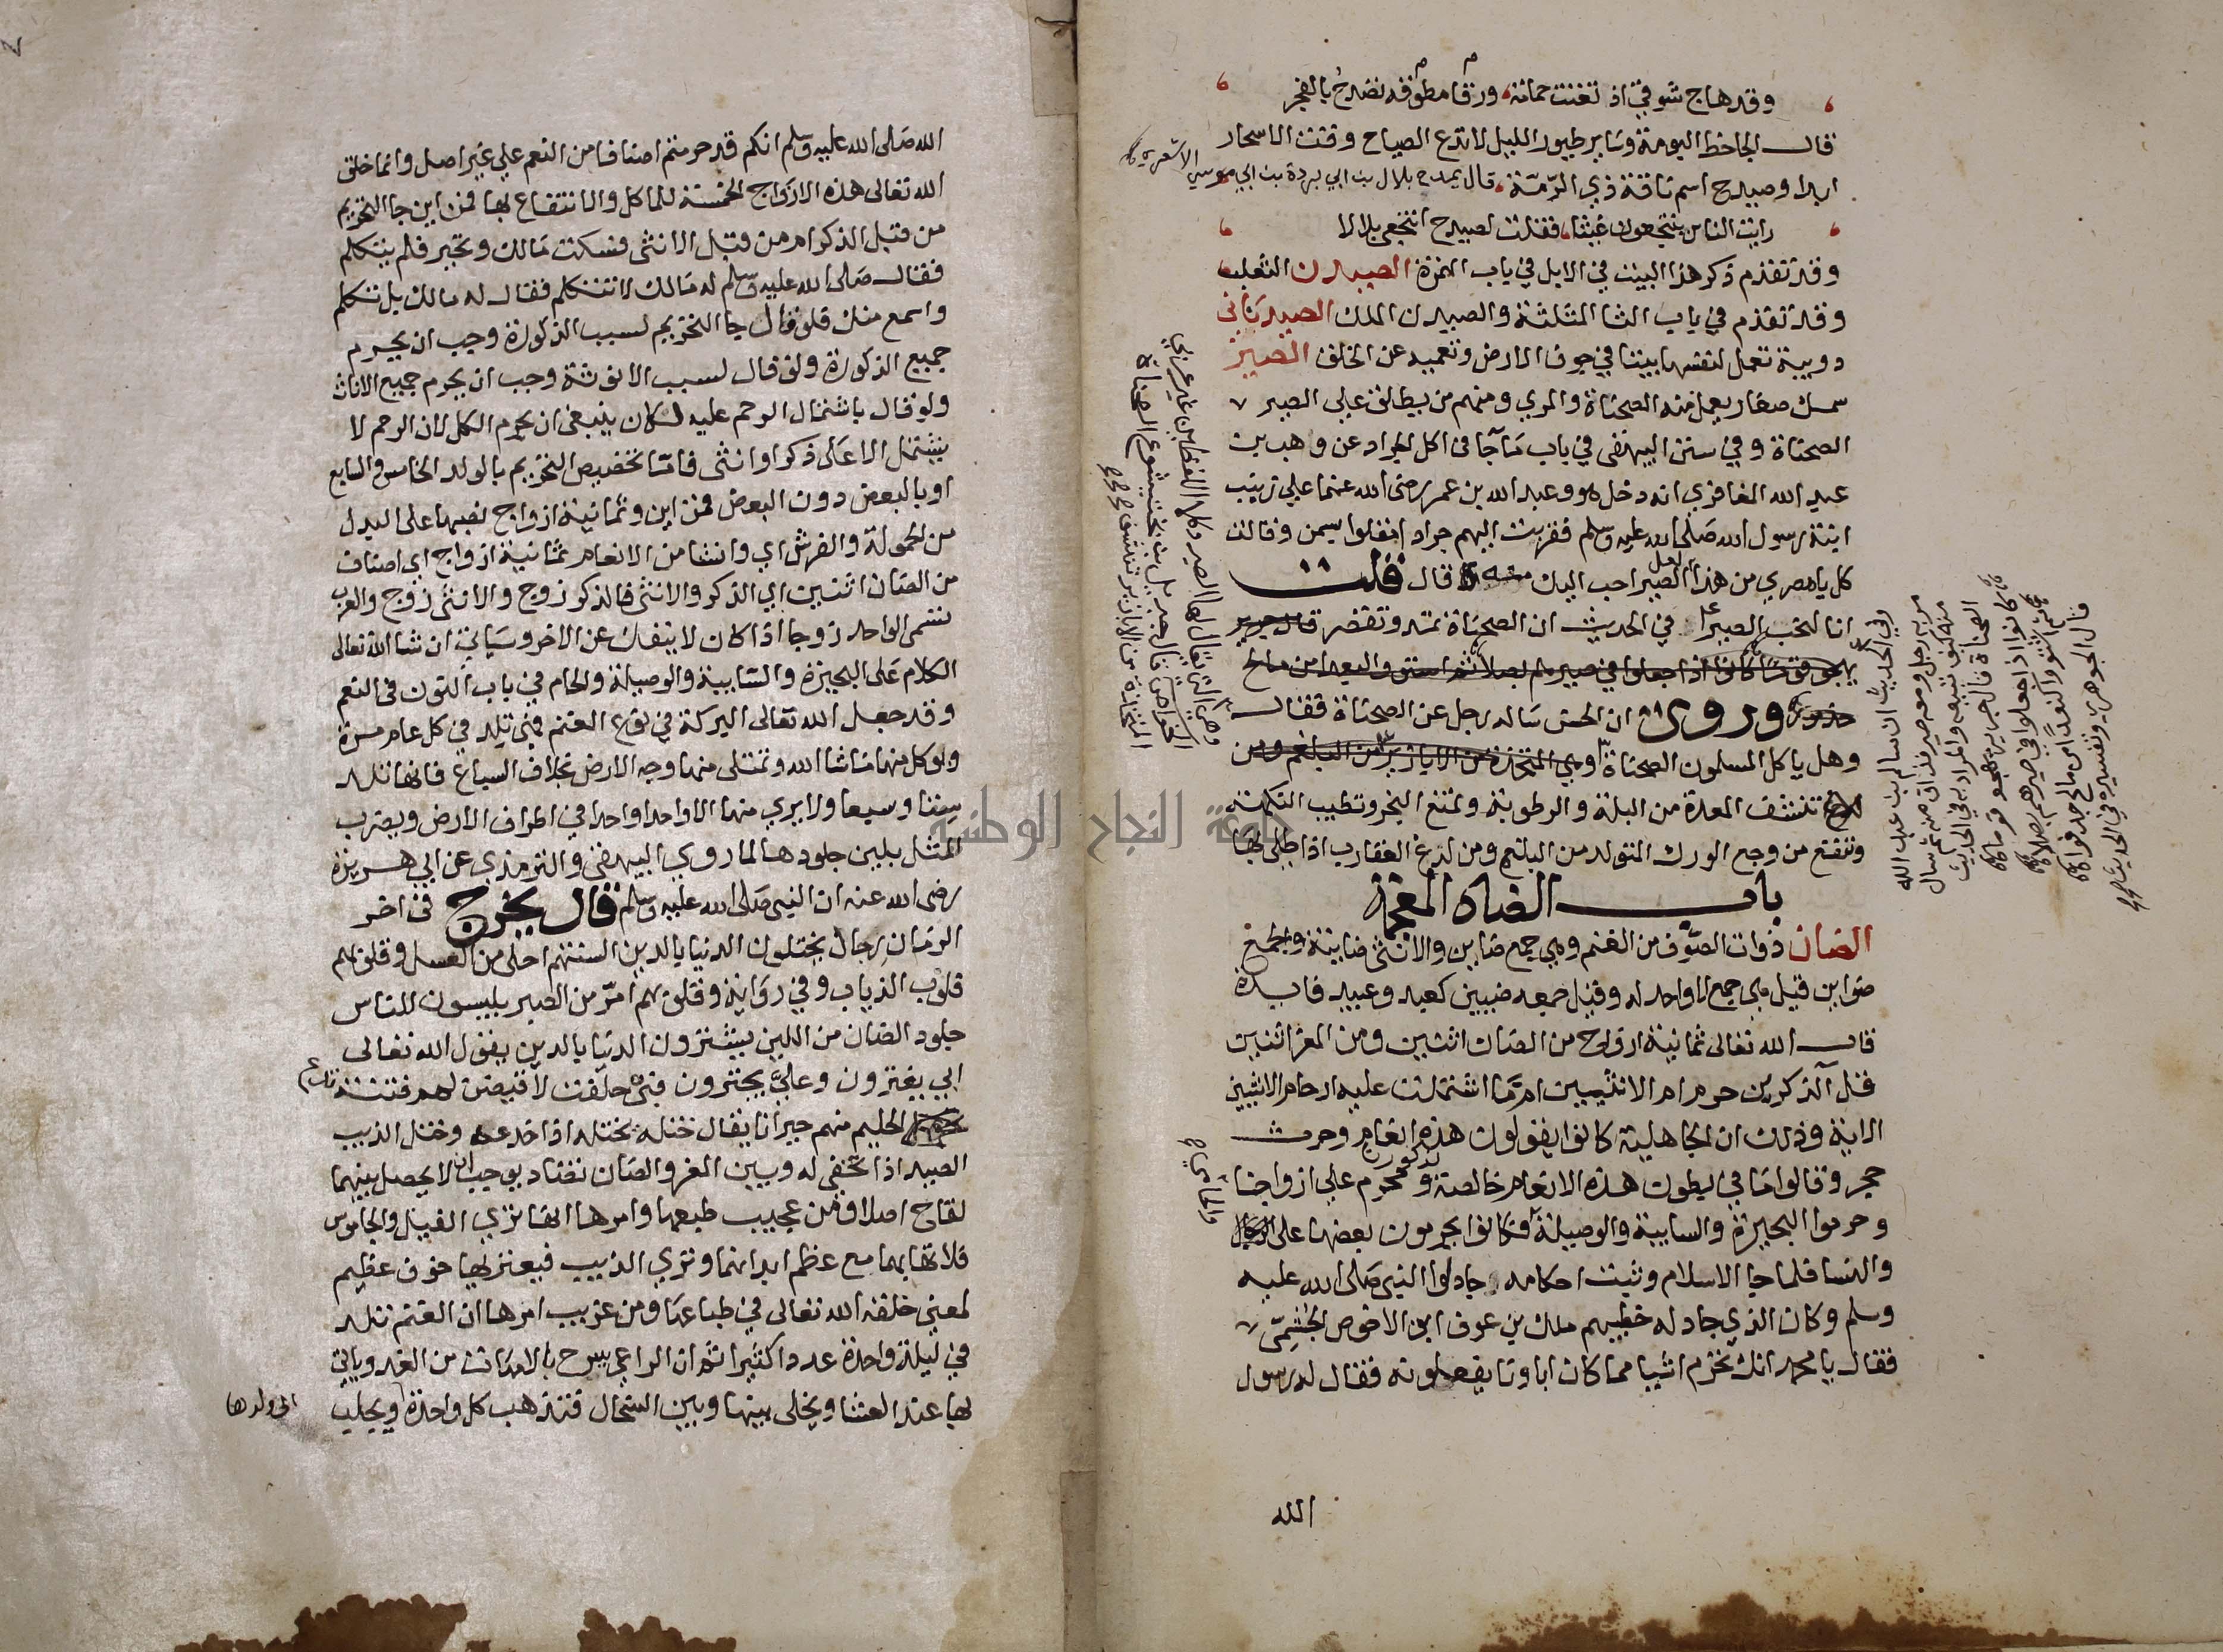 وقد هاج شوقي اذ تغنت حمامة ورقا مطوقه تصدح بالفجر
قال الجاحظ اليومة وسائر طيور الليل لا تدع الصياح وقت الاسحار
ابدا وصيدح اسم ناقة ذي الرمّة قال يمدح بلال بن ابي بردة بن ابي موسي الاشعري
رايت الناس ينتجعون غيثا فقلت لصيدح انتجعي بلالا
وقد تقدم ذكر هذا البيت في الابل في باب الهمزة الصيدن الثعلب
وقد تقدم في باب الثا المثلثة والصيدن الملك الصيدناني
دويبة تعمل لنفسها بيتا في جوف الارض وتعميه عن الخلق الصير
سمك صغار يعمل منه الصحناة والمري ومنهم من يطلق علي الصير
الصحناة وفي سنن البيهقي في باب ما جا في اكل الجراد عن وهب بن
عبد الله المغافري انه دخل هو وعبد الله بن عمر رضي الله عنهما علي زينب
ابنة رسول الله صلى الله عليه وسلم فقربت اليهم جراد امقلوا بسمن وقالت
كل يا مصري من هذا لعل الصير احب اليك منه قال قلت
انا لنحب الصير في الحديث ان الصحناة تمد وتقصر قال جرير
وروى ان الحسن ساله رجل عن الصحناة فقال
وهل ياكل المسلمون الصحناة وهي المتخذة
تنشف المعدة من البلة والرطوبة وتمنع البخر وتطيب النكهة
وتنفع من وجع الورك المتولد من البلغم ومن لدغ العقارب اذا طلي بها
باب الضاد المعجمة
الضان ذوات الصوف من الغنم وهي جمع ضاين والانثى ضاينة والجمع
ضواين قيل هي جمع لا واحد له وقيل جمعه ضيين كعبد وعبيد فايدة
قال الله تعالى ثمانية ازواج من الضان اثنين ومن المعز اثنين
قل آلذكرين حرم ام الانثيين اما اشتملت عليه ارحام الانثيين
الاية وذلك ان الجاهلية كانوا يقولون هذه انعام وحرث
حجر وقالوا ما في بطون هذه الانعام خالصة لذكورنا ومحرم علي ازواجنا
وحرموا البحيرة والسايبة والوصيلة والحامي فكانوا يحرمون بعضها على الرجال
والنسا فلما جا الاسلام وثبت احكامه جادلوا النبي صلى الله عليه
وسلم وكان الذي جادله خطيبهم ملك بن عوف ابن الاخوص الجشميّ
فقال يا محمد انك تحرم اشيا مما كان اباونا يفعلونه فقال له رسول
الله
وفي الحديث ان سالم بن عبد الله
مر به رجل ومعه صير فذاق منه ثم سال
منه كيف تبيعه والمراد به في الحديث
الصحناة قال جرير يهجو قوما
كانوا اذا جعلوا في صيرهم بصلا
ثم اشتووا كنعدا من مالح جدفوا
قال الجوهري وتفسيره في الحديث
الله صلى الله عليه وسلم انكم قد حرمتم اصنافا من النعم علي غير اصل وانما خلق
الله تعالى هذه الازواج الخمسة للماكل والانتفاع بها فمن اين جا التحريم
من قبل الذكر ام من قبل الانثى فسكت مالك وتحير فلم يتكلم
فقال صلى الله عليه وسلم له مالك لا تتكلم فقال له مالك بل تكلم
واسمع منك فلو قال جا التحريم لسبب الذكورة وجب ان يحرم
جميع الذكورة ولو قال لسبب الانوثة وجب ان يحرم جميع الاناث
ولو قال باشتمال الرحم عليه لكان ينبغي ان يحرم الكل لان الرحم لا
يشتمل الا على ذكر او انثى فاما تخصيص التحريم بالولد الخامس والسابع
او بالبعض دون البعض فمن اين وثمانية ازواج نصبها على البدل
من الحمولة والفرش اي وانشا من الانعام ثمانية ازواج اي اصناف
من الضان اثنين اي الذكر والانثى فالذكر زوج والانثى زوج والعرب
تسمى الواحد زوجا اذا كان لا ينفك عن الاخر وسياتي ان شا الله تعالى
الكلام على البحيرة والسايبة والوصيلة والحام في باب النون في النعم
وقد جعل الله تعالى البركة في نوع الغنم فهي تلد في كل عام مرة
ويوكل منها ما شا الله وتمتلى منها وجه الارض بخلاف السباع فانها تلد
ستا وسبعا ولا يرى منها الا واحدا واحدا في اطراف الارض ويضرب
المثل بلين جلودها لما روي البيهقي والترمذي عن ابي هريرة
رضى الله عنه ان النبي صلى الله عليه وسلم قال يخرج في اخر
الزمان رجال يختلون الدنيا بالدين السنتهم احلى من العسل وقلوبهم
قلوب الذياب وفي رواية وقلوبهم امرّ من الصبر يلبسون للناس
جلود الضان من اللين يشترون الدنيا بالدين يقول الله تعالى
ابي يغترون وعليّ يجترون فبي حلفت لاقيضن لهم فتنة تدع
الحليم منهم حيرانا يقال ختله يختله اذا خدعه وختل الذيب
الصيد اذا تخفى له وبين المعز والضان تضاد يوجب ان لا يحصل بينهما
لقاح اصلا ومن عجيب طبعها وامرها انها تري الفيل والجاموس
فلا تهابهما مع عظم ابدانهما وتري الذيب فيعتريها خوف عظيم
لمعنى خلقه الله تعالى في طباعها ومن غريب امرها ان الغنم تلد
في ليلة واحدة عددا كثيرا ثم ان الراعي يسرح بالامهات من الغد وياتي
بها عند العشا ويخلي بينها وبين السخال فتذهب كل واحدة الى ولدها ويحلب
جامعة النجاح الوطنية